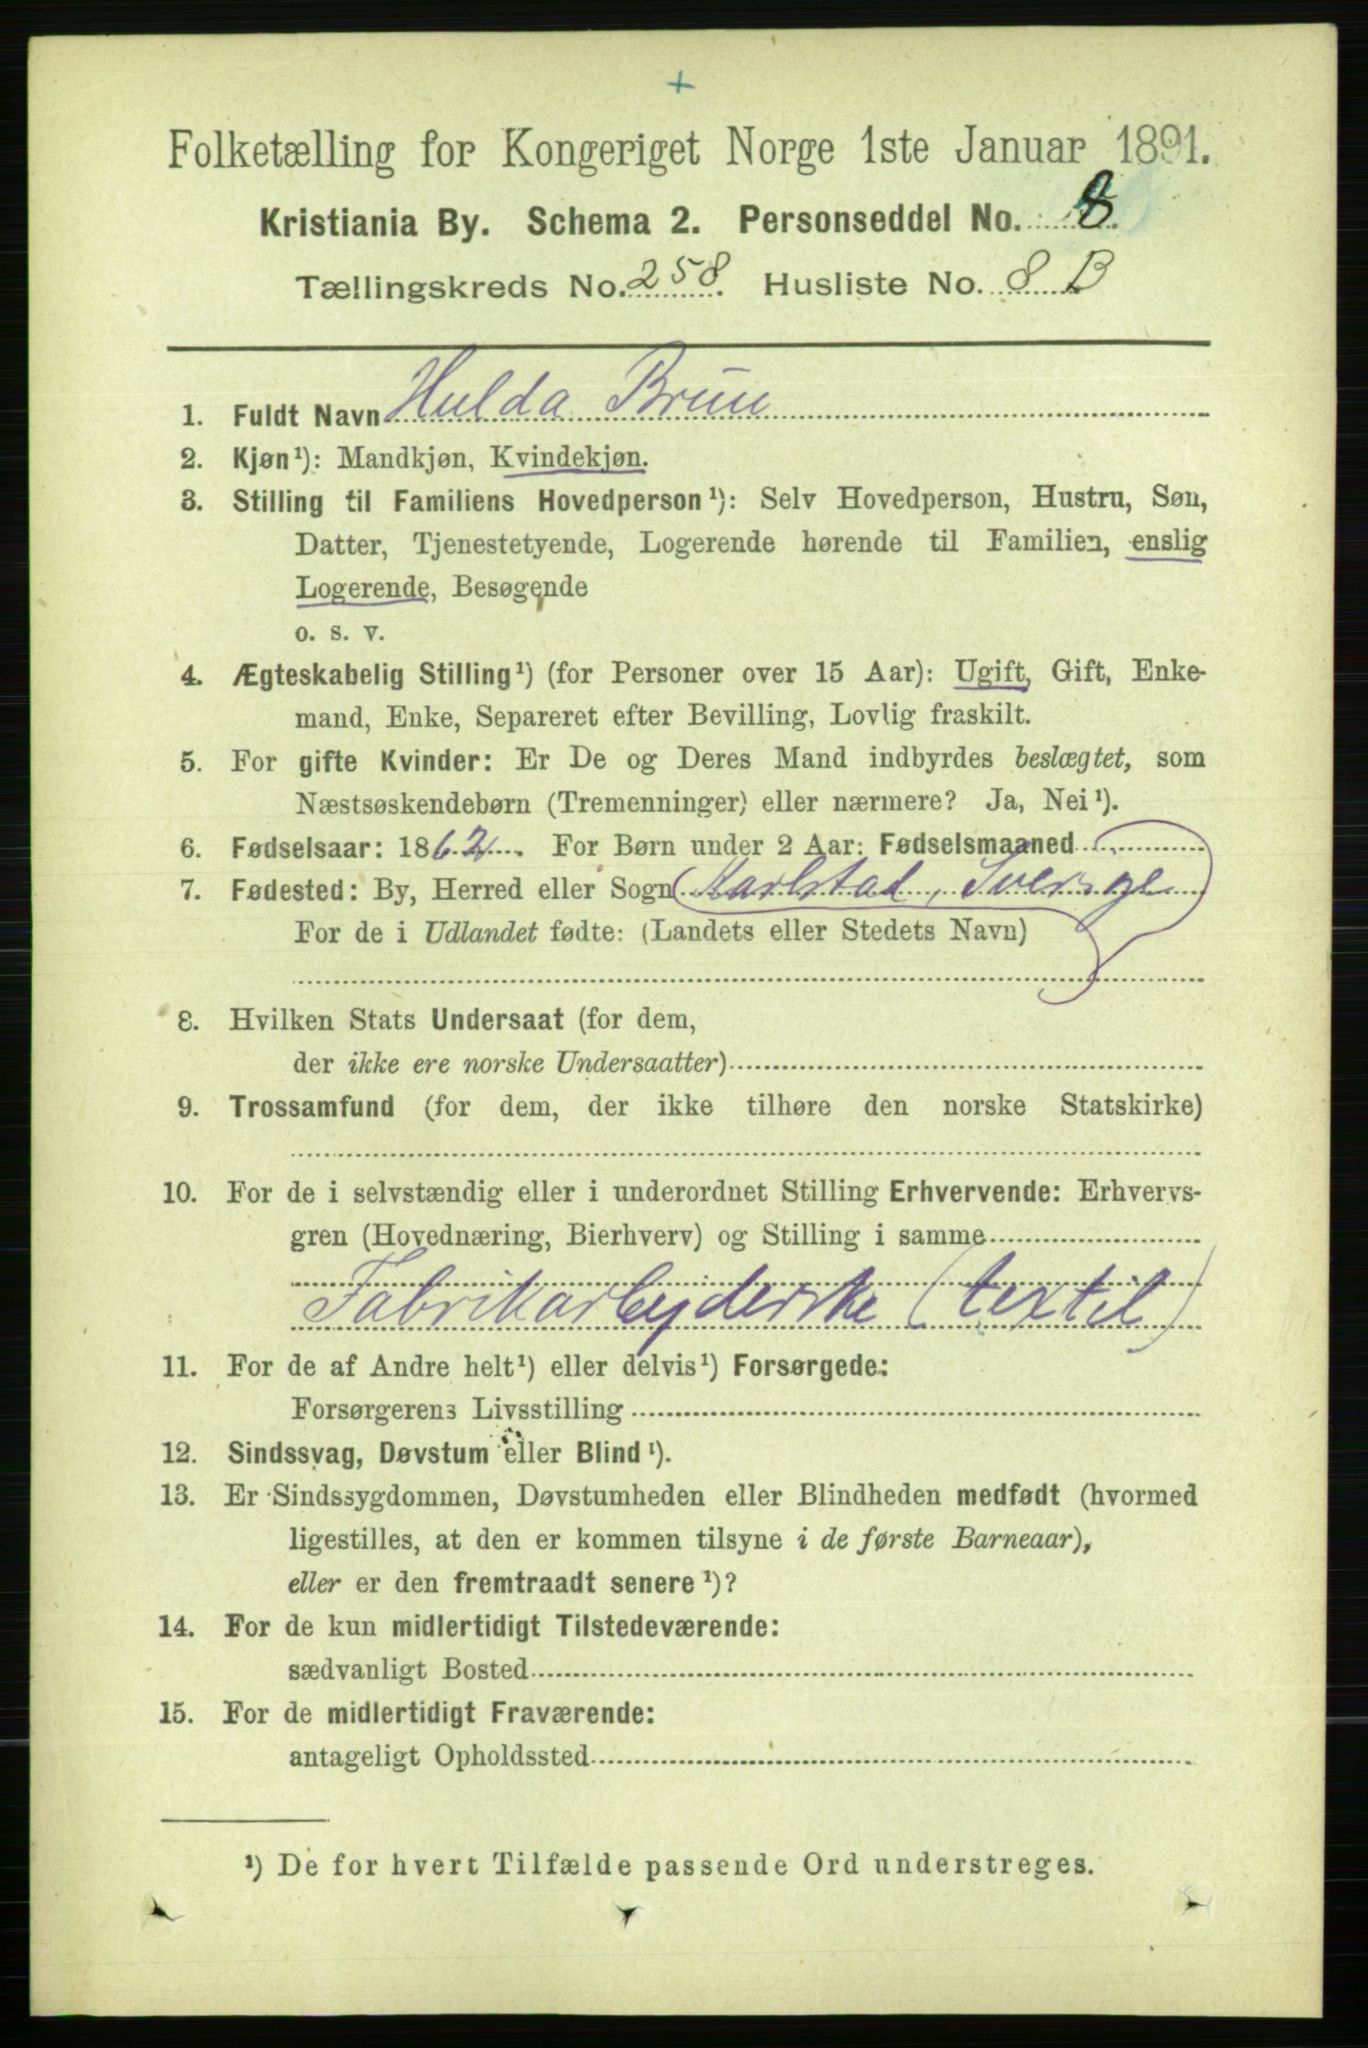 +
Folketælling for Kongeriget Norge 1ste Januar 1891.
Kristiania By. Schema 2. Personseddel No. 8.
Tællingskreds No. 258. Husliste No. 8 B
1. Fuldt Navn Hulda Bruu
2. Kjøn¹): Mandkjøn, Kvindekjøn.
3. Stilling til Familiens Hovedperson¹): Selv Hovedperson, Hustru, Søn,
Datter, Tjenestetyende, Logerende hørende til Familien, enslig
Logerende, Besøgende
o. s. v.
4. Ægteskabelig Stilling¹) (for Personer over 15 Aar): Ugift, Gift, Enke-
mand, Enke, Separeret efter Bevilling, Lovlig fraskilt.
5. For gifte Kvinder: Er De og Deres Mand indbyrdes beslægtet, som
Næstsøskendebørn (Tremenninger) eller nærmere? Ja, Nei¹).
6. Fødselsaar: 1862. For Børn under 2 Aar: Fødselsmaaned
7. Fødested: By, Herred eller Sogn Karlstad, Sverige
For de i Udlandet fødte: (Landets eller Stedets Navn)
8. Hvilken Stats Undersaat (for dem,
der ikke ere norske Undersaatter)
9. Trossamfund (for dem, der ikke tilhøre den norske Statskirke)
10. For de i selvstændig eller i underordnet Stilling Erhvervende: Erhvervs-
gren (Hovednæring, Bierhverv) og Stilling i samme
Fabrikarbejderske (textil)
11. For de af Andre helt¹) eller delvis¹) Forsørgede:
Forsørgerens Livsstilling
12. Sindssvag, Døvstum eller Blind¹).
13. Er Sindssygdommen, Døvstumheden eller Blindheden medfødt (hvormed
ligestilles, at den er kommen tilsyne i de første Barneaar),
eller er den fremtraadt senere¹)?
14. For de kun midlertidigt Tilstedeværende:
sædvanligt Bosted
15. For de midlertidigt Fraværende:
antageligt Opholdssted
¹) De for hvert Tilfælde passende Ord understreges.